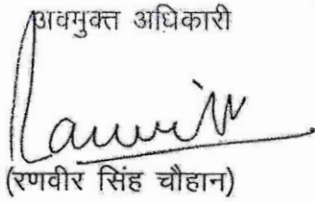 अवमुक्त अधिकारी
(रणवीर सिंह चौहान)